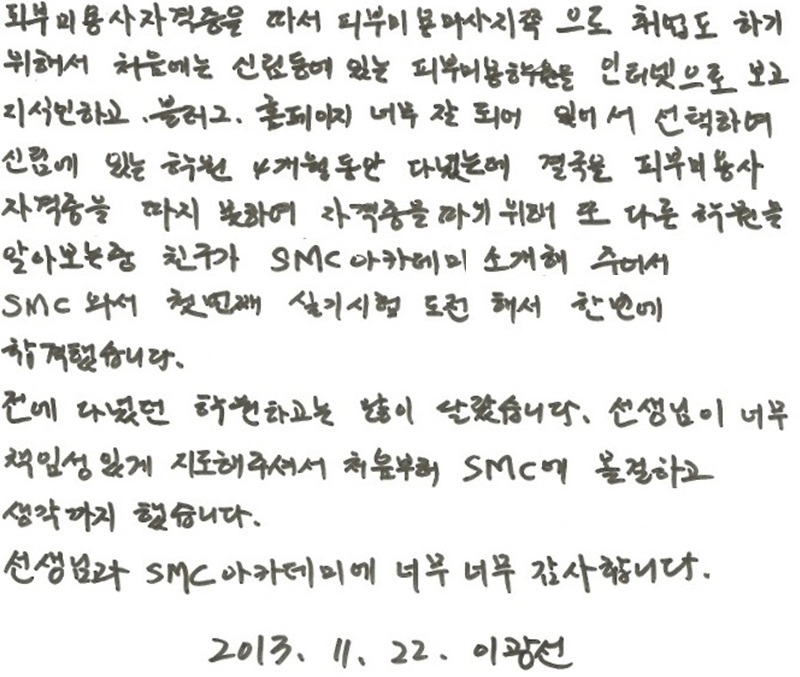 피부미용사자격증을 따서 피부미용마사지쪽 으로 취업도 하기
위해서 처음에는 신림동에 있는 피부미용학원을 인터넷으로 보고
지식인하고, 블러그, 홈페이지 너무 잘 되어 있어서 선택하여
신림에 있는 학원 4개월동안 다녔는데 결국은 피부미용사
자격증을 따지 못하여 자격증을 따기위해 또 다른 학원을
알아보는중 친구가 SMC아카데미 소개해 주어서
SMC 와서 첫번째 실기시험 도전 해서 한번에
합격했습니다.
전에 다녔던 학원하고는 많이 달랐습니다. 선생님이 너무
책임성있게 지도해주셔서 처음부터 SMC에 올걸하고
생각까지 했습니다.
선생님과 SMC아카데미에 너무 너무 감사합니다.
2013. 11. 22. 이광선